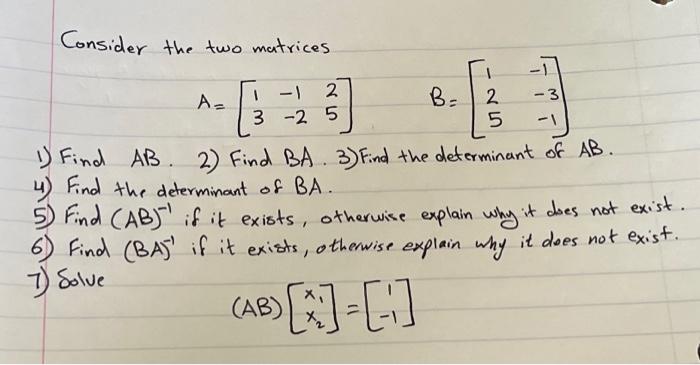 Consider the two matrices
A = [1 -1 2; 3 -2 5] B = [1 -1; 2 -3; 5 -1]
1) Find AB. 2) Find BA. 3) Find the determinant of AB.
4) Find the determinant of BA.
5) Find (AB)⁻¹ if it exists, otherwise explain why it does not exist.
6) Find (BA)⁻¹ if it exists, otherwise explain why it does not exist.
7) Solve
(AB) [x₁; x₂] = [1; -1]